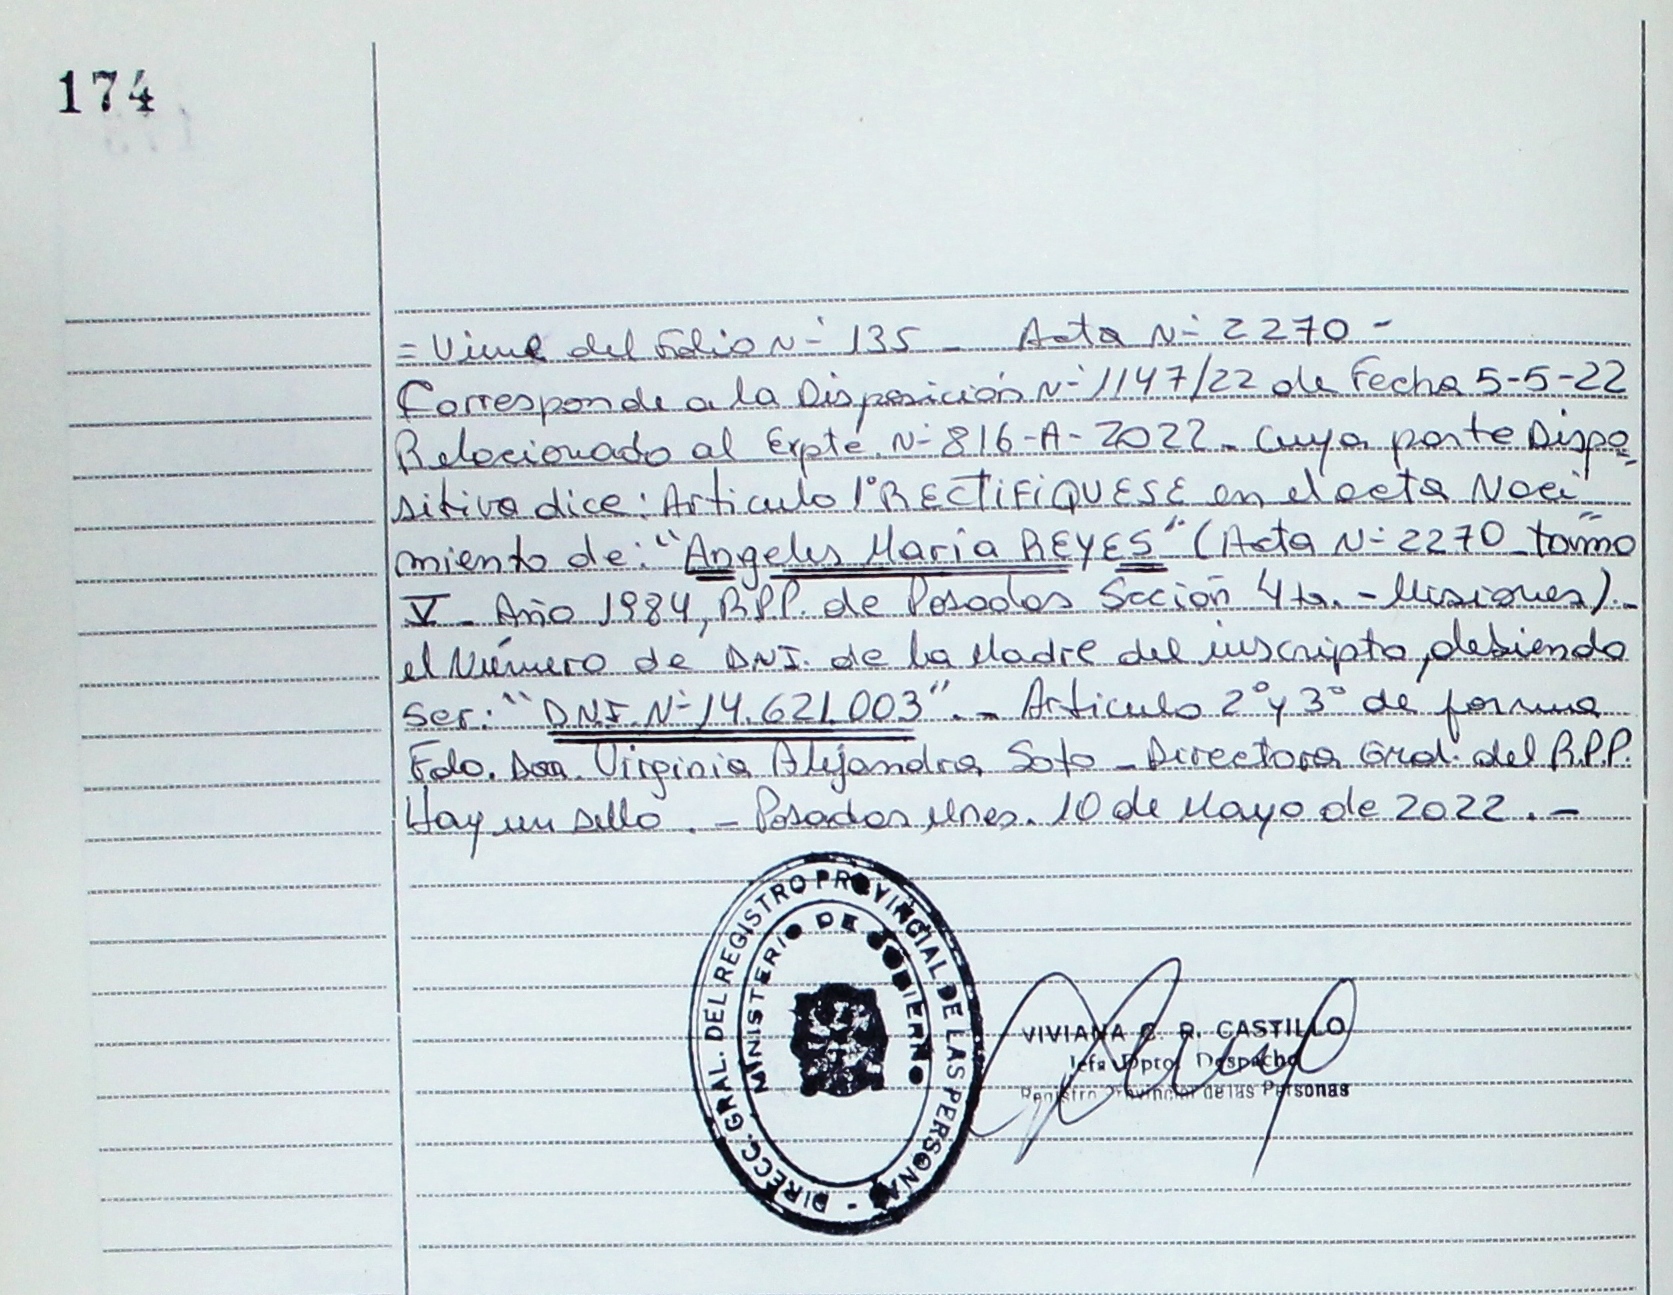 174
= Viene del Folio N- 135 - Acta N- 2270 -
Corresponde a la Disposición N- 1147/22 de Fecha 5-5-22
Relacionado al Expte. N- 816-A-2022 - Cuya parte Dispo-
sitiva dice: Articulo 1° RECTIFIQUESE en el acta Naci-
miento de: "Angeles Maria REYES" (Acta N- 2270 tomo
V - Año 1984, R.P.P. de Posadas Sección 4ta. - Misiones). -
el Número de DNI. de la Madre del inscripto, debiendo
ser: "DNI. N- 14.621.003". - Articulo 2° y 3° de forma
Fdo. Dña. Virginia Alejandra Soto - Directora Gral. del R.P.P.
Hay un sello. - Posadas, Mnes. 10 de Mayo de 2022. -
DIRECC. GRAL. DEL REGISTRO PROVINCIAL DE LAS PERSONAS -
MINISTERIO DE GOBIERNO
VIVIANA C. R. CASTILLO
Jefa Dpto. Despacho
Registro Provincial de las Personas